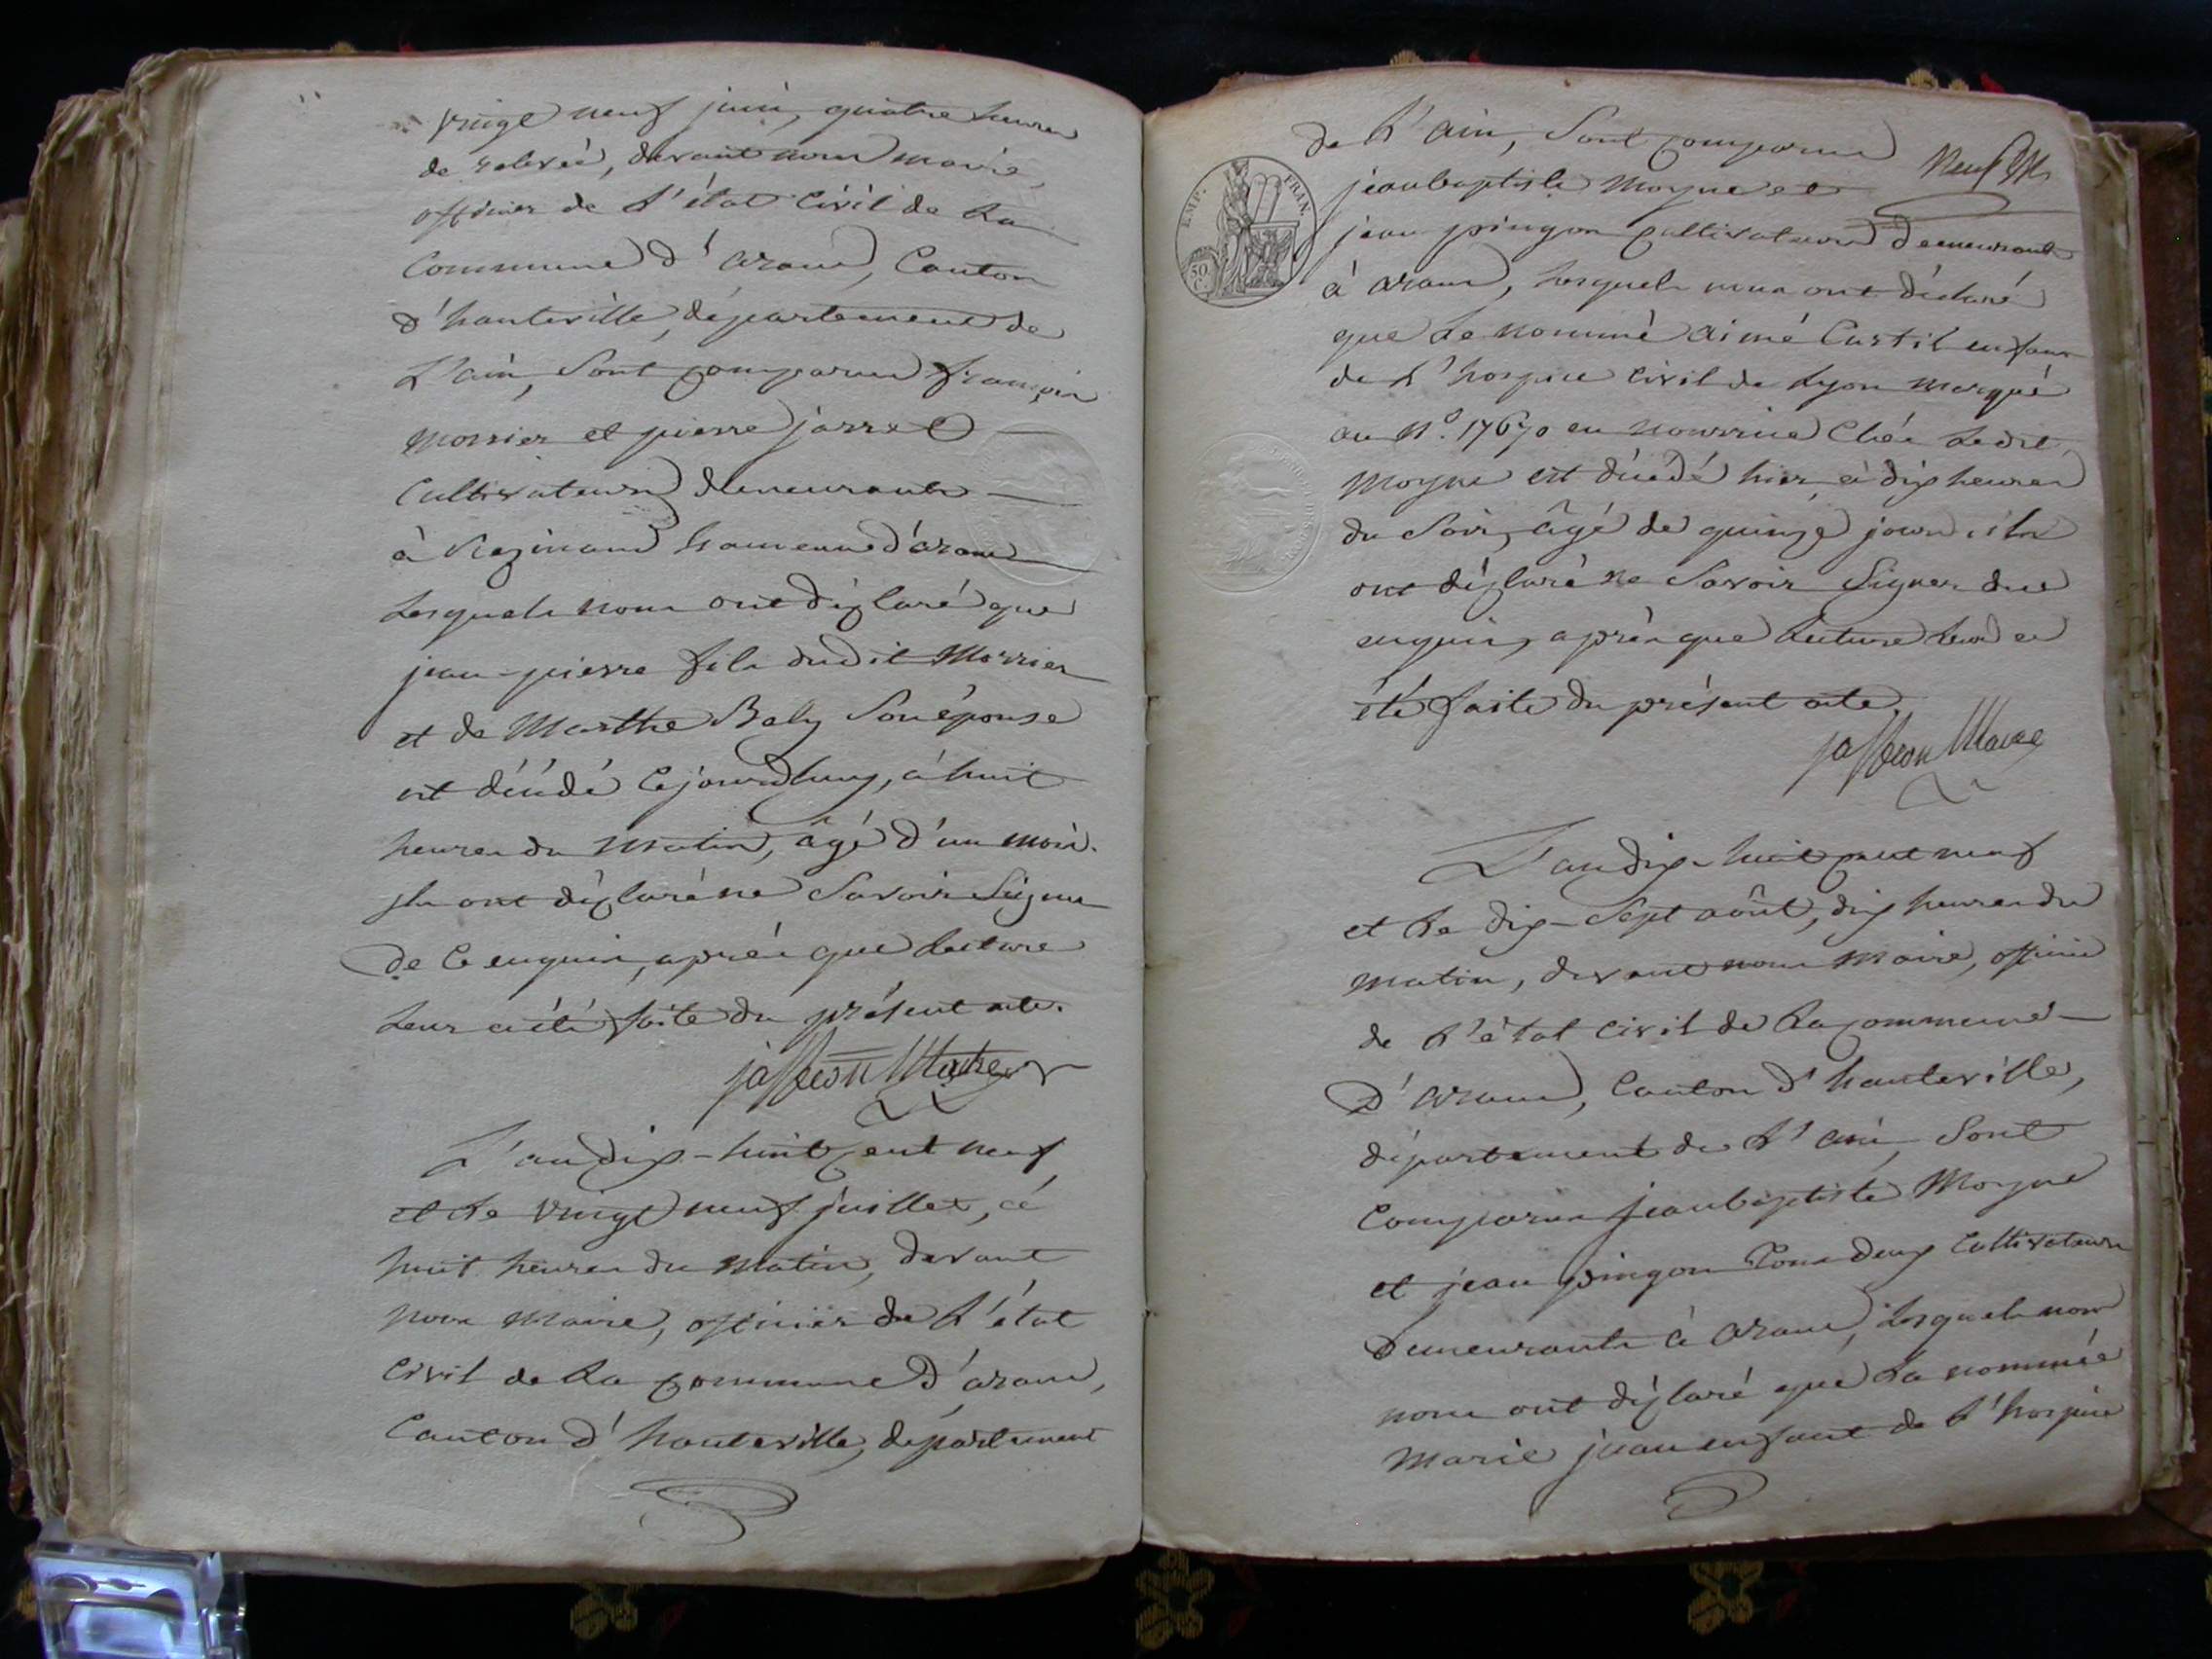 vingt neuf juin, quatre heures
de relevée, devant nous maire,
officier de l'état civil de la
Commune d'arane, Canton
d'hauteville, département de
L'ain, Sont comparus françois
Morrier et pierre jarret
Cultivateurs demeurants
à Rezinand hameau d'arane
Lesquels nous ont déclaré que
jean-pierre fils dudit Morrier
et de Marthe Baly Son épouse
est décédé Cejourdhuy, à huit
heures du matin, âgé d'un mois.
ils ont déclaré ne Savoir Signer
de Ce enquis, après que lecture
Leur a été faite du présent acte.
jasseron Maire
L'an dix-huit cent neuf
et le vingt neuf juillet, à
huit heures du matin, devant
nous maire, officier de L'état
Civil de La commune d'arane,
Canton d'hauteville, département
de L'ain, Sont comparus
neuf
EMP. FRAN.
50 C.
jeanbaptiste moyne et
jean pingon cultivateurs demeurants
à arane, lesquels nous ont déclaré
que le nommé aimé Curtil enfant
de L'hospice civil de Lyon marqué
au N.o 17670 en nourrice Chés ledit
moyne est décédé hier, à dix heures
du Soir, âgé de quinze jours, ils
ont déclaré ne Savoir Signer de ce
enquis, après que lecture leur a
été faite du présent acte.
jasseron Maire
L'an dix-huit cent neuf
et le dix-Sept août, dix heures du
matin, devant nous Maire, officier
de L'état civil de La commune
D'arane, Canton d'hauteville,
département de L'ain, Sont
Comparus jeanbaptiste Moyne
et jean pingon Tous deux Cultivateurs
Demeurants à arane, lesquels nous
nous ont déclaré que La nommée
Marie jean enfant de L'hospice